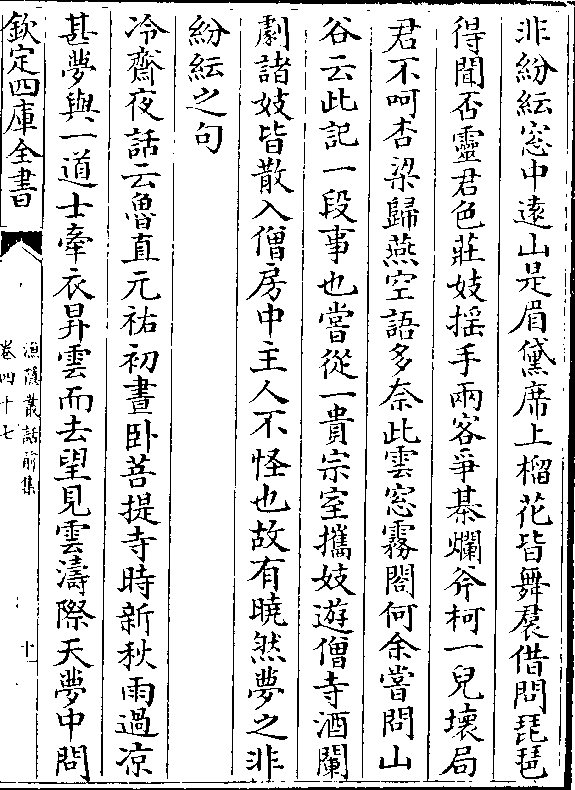 非紛紜窓中逺山是眉黛席上榴花皆舞裠借問琵琶
得聞否靈君色莊妓揺手兩客爭棊爛斧柯一兒壞局
君不呵杏梁歸燕空語多奈此雲窓霧閤何余嘗問山
谷云此記一段事也嘗從一貴宗室攜妓遊僧寺酒闌
劇諸妓皆散入僧房中主人不怪也故有曉然夢之非
紛紜之句
冷齋夜話云魯直元祐初晝卧菩提寺時新秋雨過凉
甚夢與一道士牽衣昇雲而去望見雲濤際天夢中問
欽定四庫全書
漁隠叢話前集
卷四十七
十